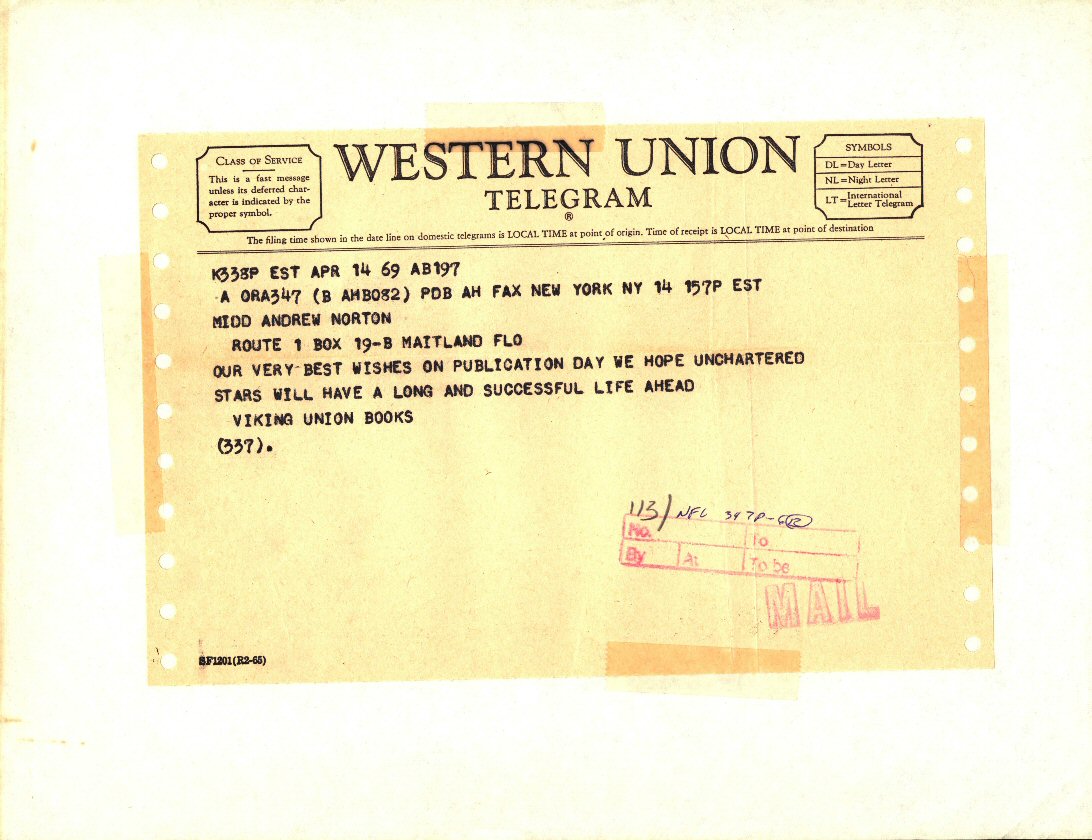 CLASS OF SERVICE
This is a fast message
unless its deferred char-
acter is indicated by the
proper symbol.
WESTERN UNION
TELEGRAM
®
SYMBOLS
DL=Day Letter
NL=Night Letter
LT=International Letter Telegram
The filing time shown in the date line on domestic telegrams is LOCAL TIME at point of origin. Time of receipt is LOCAL TIME at point of destination
K338P EST APR 14 69 AB197
A ORA347 (B AHB082) PDB AH FAX NEW YORK NY 14 157P EST
MIDD ANDREW NORTON
ROUTE 1 BOX 19-B MAITLAND FLO
OUR VERY BEST WISHES ON PUBLICATION DAY WE HOPE UNCHARTERED
STARS WILL HAVE A LONG AND SUCCESSFUL LIFE AHEAD
VIKING UNION BOOKS
(337).
113/ NFL 347P-
No. To
By At To be
MAIL
SF1201(R2-65)